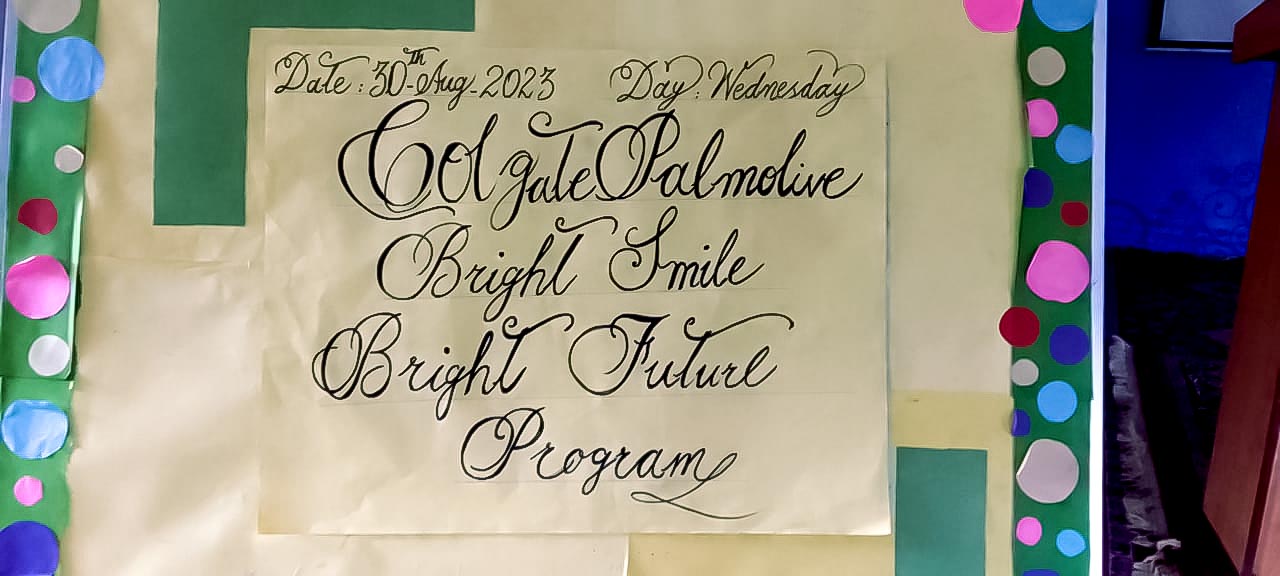 Date : 30th-Aug-2023 Day : Wednesday
Colgate Palmolive
Bright Smile
Bright Future
Program